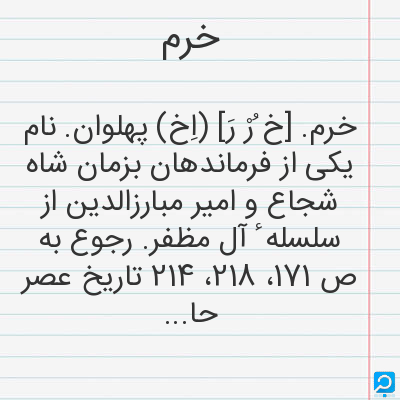 خرم
خرم. [خ ُرْ رَ] (اِخ) پهلوان. نام
یکی از فرماندهان بزمان شاه
شجاع و امیر مبارزالدین از
سلسله ٔ آل مظفر. رجوع به
ص ۱۷۱، ۲۱۸، ۲۱۴ تاریخ عصر
حا...